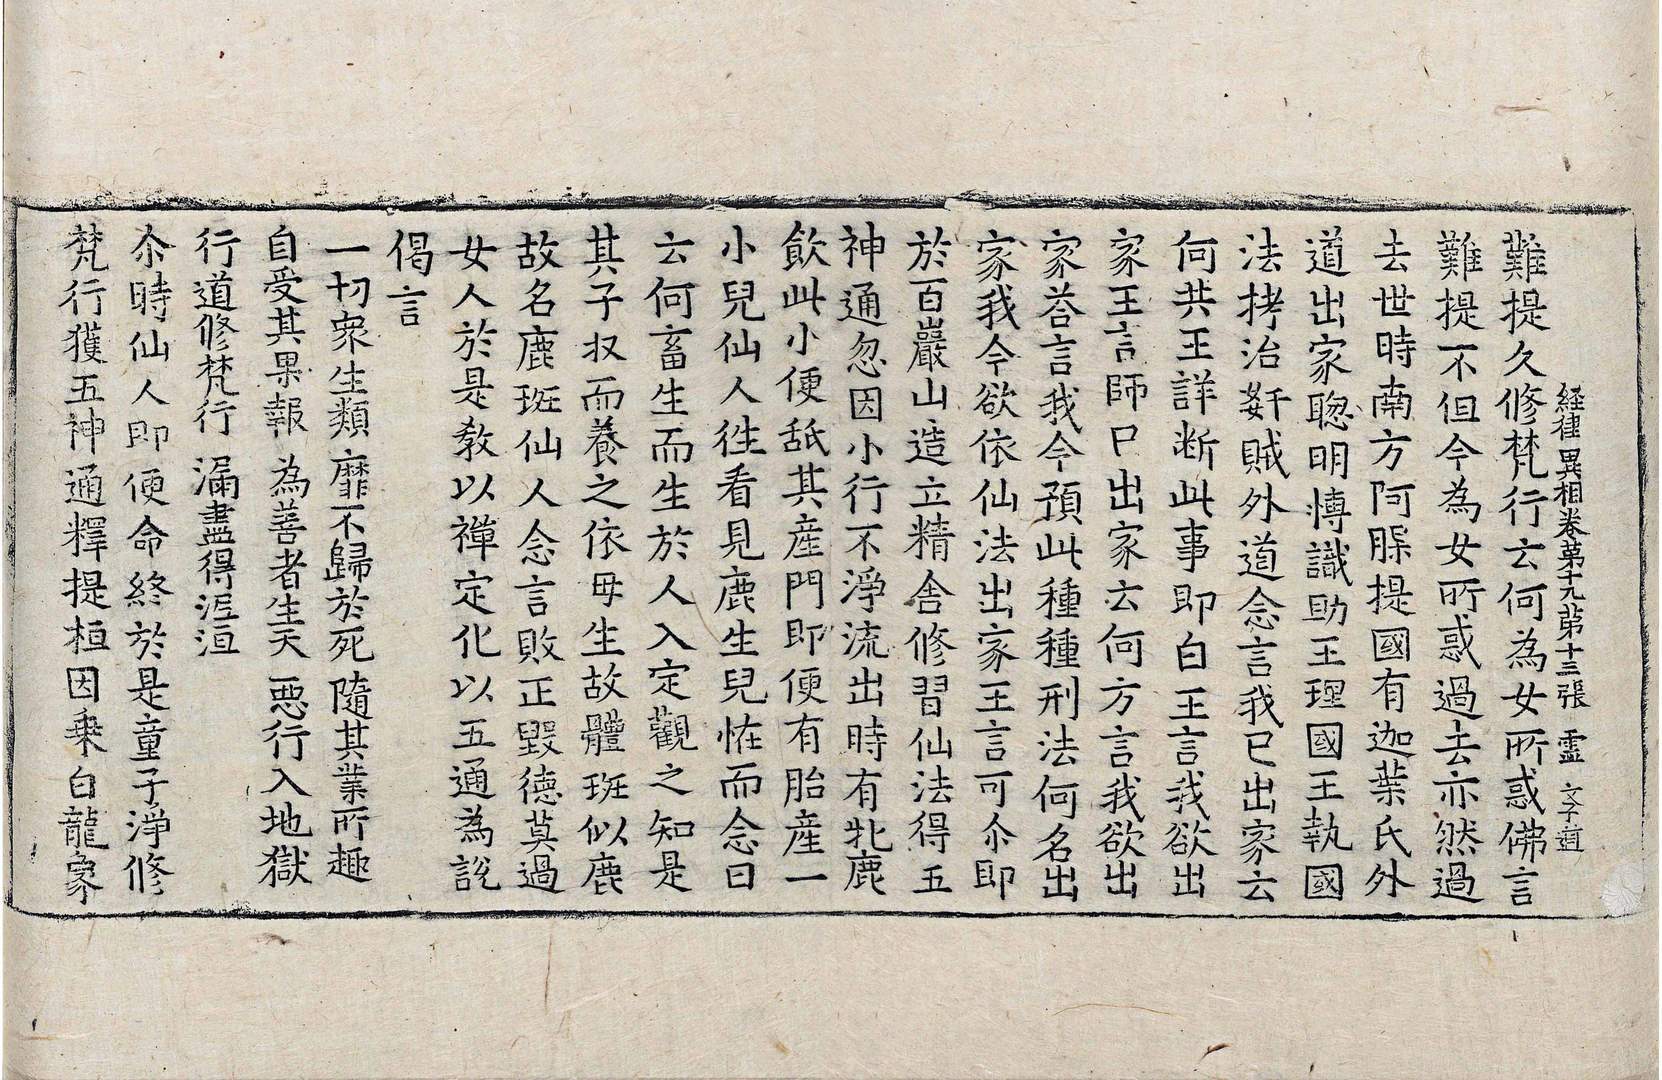 経律異相卷第十九 第十三張 靈 文子道
難提久修梵行云何為女所惑佛言
難提不但今為女所惑過去亦然過
去世時南方阿䐧提國有迦葉氏外
道出家聰明博識助王理國王執國
法拷治姧賊外道念言我已出家云
何共王詳断此事即白王言我欲出
家王言師已出家云何方言我欲出
家荅言我今預此種種刑法何名出
家我今欲依仙法出家王言可尒即
於百巖山造立精舍修習仙法得五
神通忽因小行不淨流出時有牝鹿
飲此小便舐其産門即便有胎産一
小兒仙人徃看見鹿生兒恠而念曰
云何畜生而生於人入定觀之知是
其子收而養之依母生故體斑似鹿
故名鹿斑仙人念言敗正毀德莫過
女人於是教以禅定化以五通為說
偈言
一切衆生類 靡不歸於死 隨其業所趣
自受其果報 為善者生天 惡行入地獄
行道修梵行 漏盡得泥洹
尒時仙人即便命終於是童子淨修
梵行獲五神通釋提桓因乗白龍象